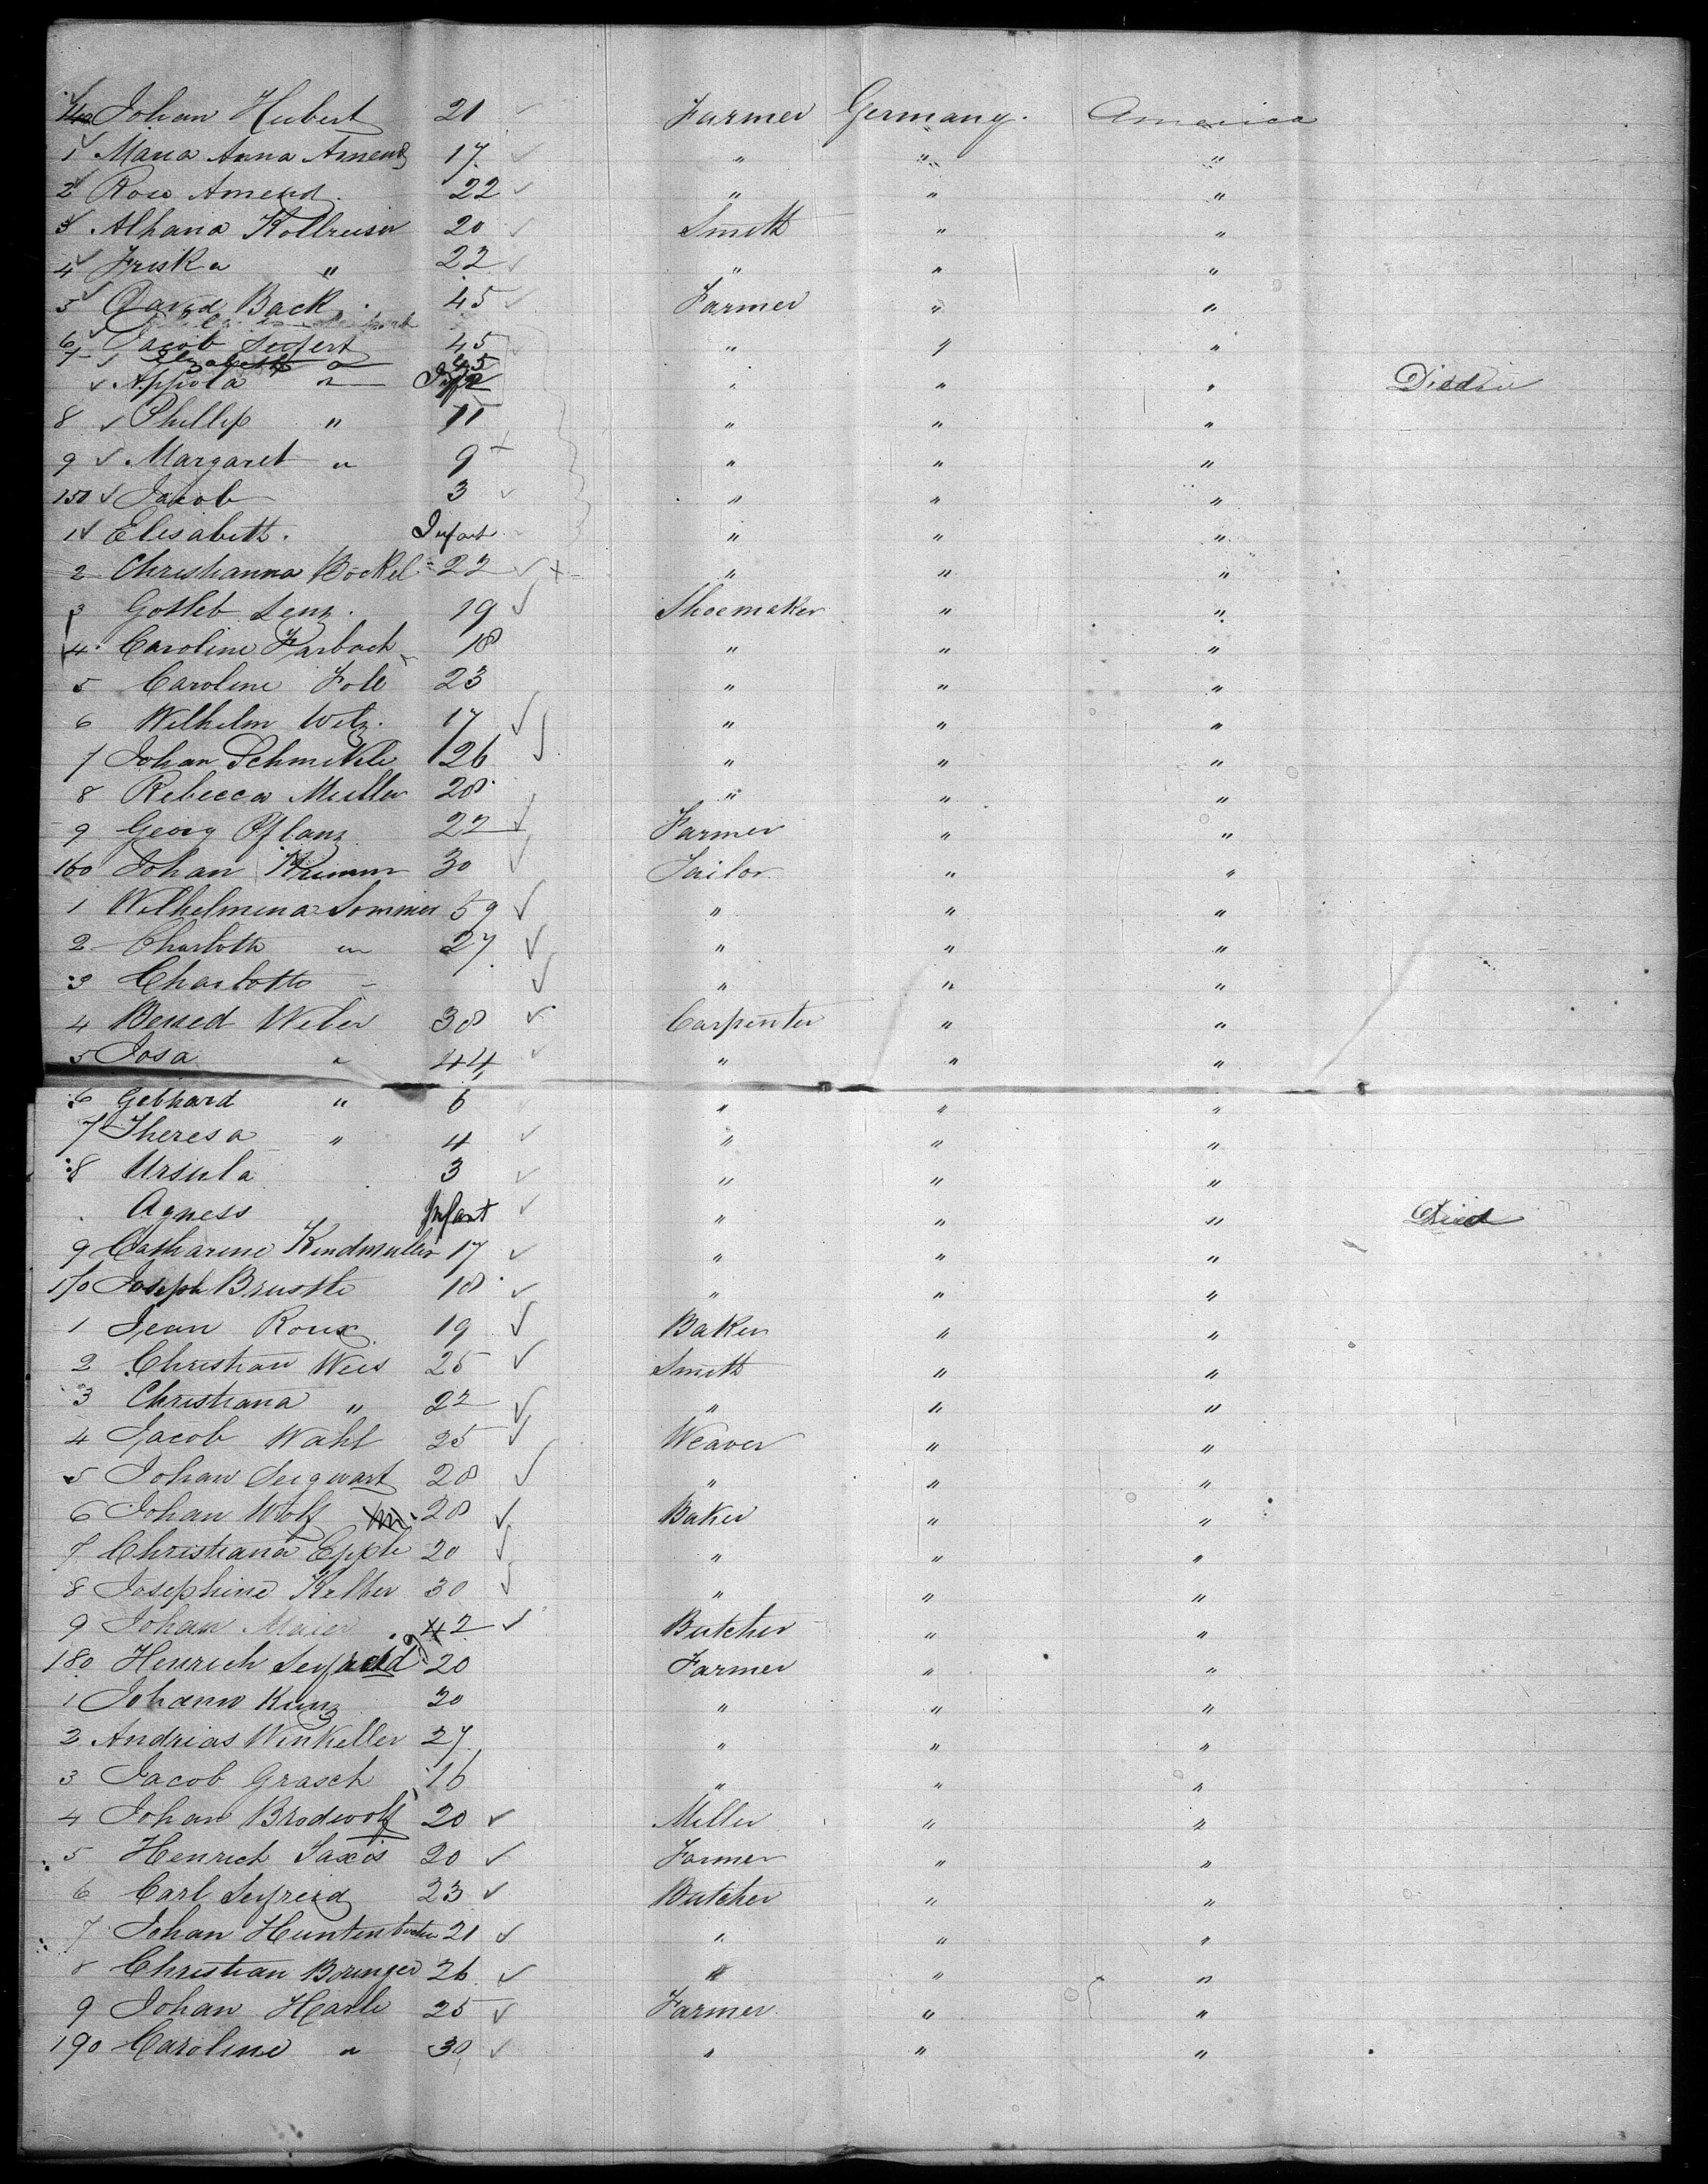 140 Johan Hubert 21 Farmer Germany. America
1 Maria Anna Amend 17 " " "
2 Rosa Amend 22 " " "
3 Albana Kollreiser 20 Smith " "
4 Friska " 22 " " "
5 David Back 45 Farmer " "
6 Jacob Seifert 45 " " "
7 Elizabeth " 45
Appola " Inft " " " Died
8 Phillip " 11 " " "
9 Margaret " 9 " " "
150 Jacob 3 " " "
1 Elisabeth. Infant " " "
2 Christianna Bockel 22 " " "
3 Gotleb Lenz. 19 Shoemaker " "
4 Caroline Farbach 18 " " "
5 Caroline Foll 23 " " "
6 Wilhelm Wetz. 17 " " "
7 Johan Schmikle 26 " " "
8 Rebecca Muller 28 " " "
9 Georg Pflanz 22 Farmer " "
160 Johan Krumm 30 Tailor " "
1 Wilhelmina Sommer 59 " " "
2 Charloth " 27 " " "
3 Charlotte " " " "
4 Bened Weber 38 Carpenter " "
5 Josa " 44 " " "
6 Gebhard " 6 " " "
7 Theresa " 4 " " "
8 Ursula 3 " " "
Agness Infant " " " Died
9 Catharine Kindmuller 17 " " "
170 Joseph Brustle 18 " " "
1 Jean Roux 19 Baker " "
2 Christian Wees 25 Smith " "
3 Christiana " 22 " " "
4 Jacob Wahl 25 Weaver " "
5 Johan Seigwart 28 " " "
6 Johan Wolf 28 Baker " "
7 Christiana Epple 20 " " "
8 Josephine Kelber 30 " " "
9 Johan Maier 42 Butcher " "
180 Henrich Seyfreid 20 Farmer " "
1 Johann Kunz 20 " " "
2 Andrias Winkeller 27 " " "
3 Jacob Grasch 16 " " "
4 Johan Brodwolf 20 Miller " "
5 Henrich Saxis 20 Farmer " "
6 Carl Seyfreid 23 Butcher " "
7 Johan Huntenbucher 21 " " "
8 Christian Boringer 26 " " "
9 Johan Harle 25 Farmer " "
190 Caroline " 30 " " "